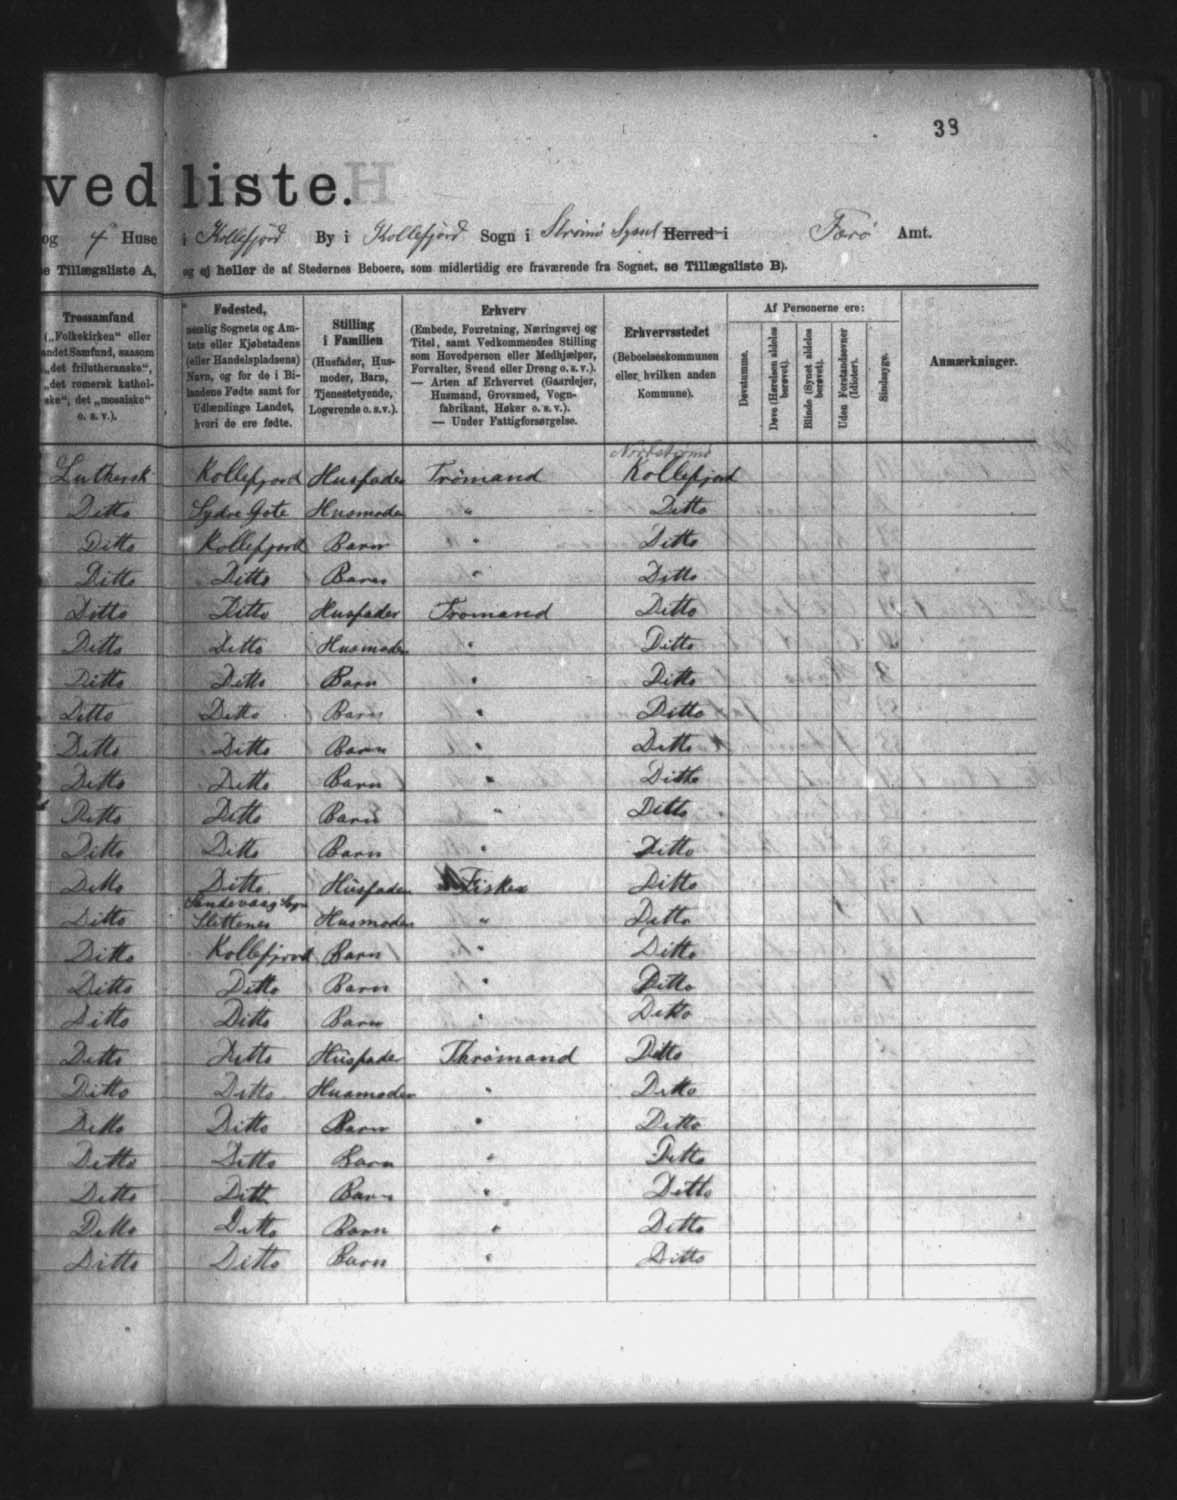 38
ved liste.
og 4 Huse i Kollefjord By i Kollefjord Sogn i Strømø Syssel Herred i Færø Amt.
e Tillægsliste A, og ej heller de af Stedernes Beboere, som midlertidig ere fraværende fra Sognet, se Tillægsliste B).
Trossamfund
(„Folkekirken“ eller
andet Samfund, saasom
„det frilutheranske“,
„det romersk kathol-
ske“, det „mosaiske“
o. s. v.).
Fødested,
nemlig Sognets og Am-
tets eller Kjøbstadens
(eller Handelspladsens)
Navn, og for de i Bi-
landene Fødte samt for
Udlændinge Landet,
hvori de ere fødte.
Stilling
i Familien
(Husfader, Hus-
moder, Barn,
Tjenestetyende,
Logerende o.s.v.).
Erhverv
(Embede, Forretning, Næringsvej og
Titel, samt Vedkommendes Stilling
som Hovedperson eller Medhjælper,
Forvalter, Svend eller Dreng o. s. v.).
— Arten af Erhvervet (Gaardejer,
Husmand, Grovsmed, Vogn-
fabrikant, Høker o. s. v.).
— Under Fattigforsørgelse.
Erhvervsstedet
(Beboelseskommunen
eller hvilken anden
Kommune).
Af Personerne ere:
Døvstumme.
Døve (Hørelsen aldeles
berøvet).
Blinde (Synet aldeles
berøvet).
Uden Forstandsevner
(Idioter).
Sindssyge.
Anmærkninger.
Nordstrømø
Luthersk Kollefjord Husfader Trømand Kollefjord
Ditto Sydre Gøte Husmoder " Ditto
Ditto Kollefjord Barn " Ditto
Ditto Ditto Barn " Ditto
Ditto Ditto Husfader Tromand Ditto
Ditto Ditto Husmoder " Ditto
Ditto Ditto Barn " Ditto
Ditto Ditto Barn " Ditto
Ditto Ditto Barn " Ditto
Ditto Ditto Barn " Ditto
Ditto Ditto Barn " Ditto
Ditto Ditto Barn " Ditto
Ditto Ditto Husfader Fisker Ditto
Sandevaag Sogn
Ditto Slettenes Husmoder " Ditto
Ditto Kollefjord Barn " Ditto
Ditto Ditto Barn " Ditto
Ditto Ditto Barn " Ditto
Ditto Ditto Husfader Thrømand Ditto
Ditto Ditto Husmoder " Ditto
Ditto Ditto Barn " Ditto
Ditto Ditto Barn " Ditto
Ditto Ditt Barn " Ditto
Ditto Ditto Barn " Ditto
Ditto Ditto Barn " Ditto